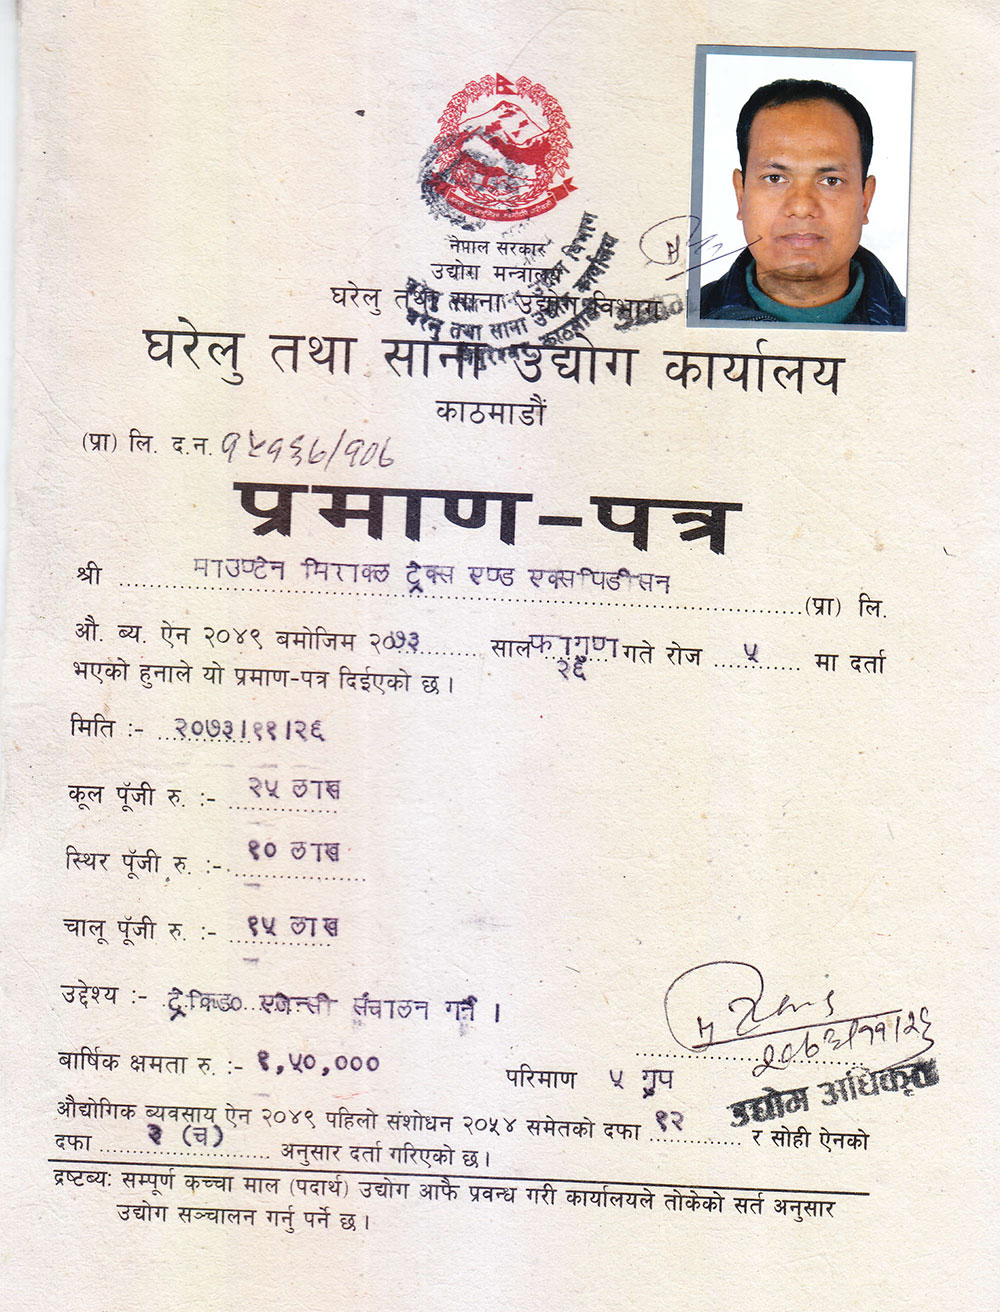 नेपाल सरकार
उद्योग मन्त्रालय
घरेलु तथा साना उद्योग विभाग
घरेलु तथा साना उद्योग कार्यालय
काठमाडौं
(प्रा) लि. द.न. १५१६७/१०७
प्रमाण-पत्र
श्री माउण्टेन मिराक्ल ट्रेक्स एण्ड एक्सपिडीसन (प्रा) लि.
औ. ब्य. ऐन २०४९ बमोजिम २०७३ साल फागुण २६ गते रोज ५ मा दर्ता
भएको हुनाले यो प्रमाण-पत्र दिईएको छ ।
मिति :- २०७३।११।२६
कूल पूँजी रु. :- २५ लाख
स्थिर पूँजी रु. :- १० लाख
चालू पूँजी रु. :- १५ लाख
उद्देश्य :- ट्रेकिङ एजेन्सी संचालन गर्ने ।
बार्षिक क्षमता रु. :- १,५०,००० परिमाण ५ ग्रुप
२०७३/११/२६
उद्योग अधिकृत
औद्योगिक ब्यवसाय ऐन २०४९ पहिलो संशोधन २०५४ समेतको दफा १२ र सोही ऐनको
दफा ३ (च) अनुसार दर्ता गरिएको छ ।
द्रष्टब्य: सम्पूर्ण कच्चा माल (पदार्थ) उद्योग आफै प्रवन्ध गरी कार्यालयले तोकेको सर्त अनुसार
उद्योग सञ्चालन गर्नु पर्ने छ ।